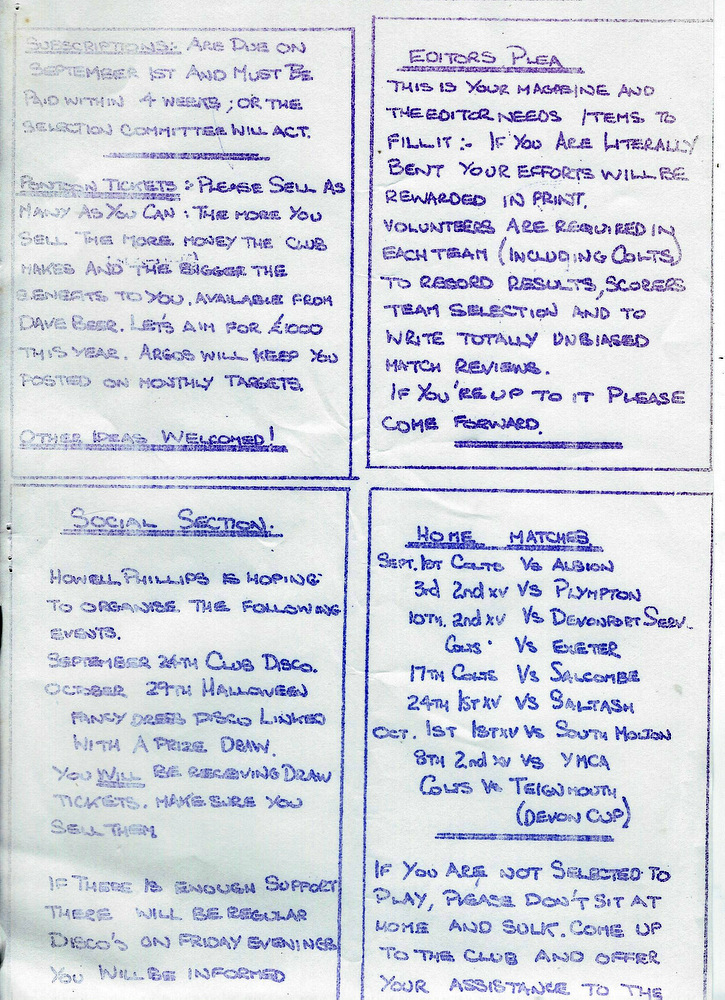 SUBSCRIPTIONS:- ARE DUE ON
SEPTEMBER 1ST AND MUST BE
PAID WITHIN 4 WEEKS; OR THE
SELECTION COMMITTEE WILL ACT.
PONTOON TICKETS:- PLEASE SELL AS
MANY AS YOU CAN: THE MORE YOU
SELL THE MORE MONEY THE CLUB
MAKES AND THE BIGGER THE
BENEFITS TO YOU. AVAILABLE FROM
DAVE BEER. LET'S AIM FOR £1000
THIS YEAR. ARGOS WILL KEEP YOU
POSTED ON MONTHLY TARGETS.
OTHER IDEAS WELCOMED!
EDITORS PLEA
THIS IS YOUR MAGAZINE AND
THE EDITOR NEEDS ITEMS TO
FILL IT:- IF YOU ARE LITERALLY
BENT YOUR EFFORTS WILL BE
REWARDED IN PRINT.
VOLUNTEERS ARE REQUIRED IN
EACH TEAM (INCLUDING COLTS)
TO RECORD RESULTS, SCORERS
TEAM SELECTION AND TO
WRITE TOTALLY UNBIASED
MATCH REVIEWS.
IF YOU'RE UP TO IT PLEASE
COME FORWARD.
SOCIAL SECTION.
HOWELL PHILLIPS IS HOPING
TO ORGANISE THE FOLLOWING
EVENTS.
SEPTEMBER 24TH CLUB DISCO.
OCTOBER 29TH HALLOWEEN
FANCY DRESS DISCO LINKED
WITH A PRIZE DRAW.
YOU WILL BE RECEIVING DRAW
TICKETS. MAKE SURE YOU
SELL THEM
IF THERE IS ENOUGH SUPPORT
THERE WILL BE REGULAR
DISCO'S ON FRIDAY EVENINGS
YOU WILL BE INFORMED
HOME MATCHES
SEPT. 1ST COLTS VS ALBION
3rd 2nd XV VS PLYMPTON
10TH. 2nd XV VS DEVONPORT SERV.
COLTS VS EXETER
17TH COLTS VS SALCOMBE
24TH 1ST XV VS SALTASH
OCT. 1ST 1ST XV VS SOUTH MOLTON
8TH 2nd XV VS YMCA
COLTS VS TEIGNMOUTH
(DEVON CUP)
IF YOU ARE NOT SELECTED TO
PLAY, PLEASE DON'T SIT AT
HOME AND SULK. COME UP
TO THE CLUB AND OFFER
YOUR ASSISTANCE TO THE